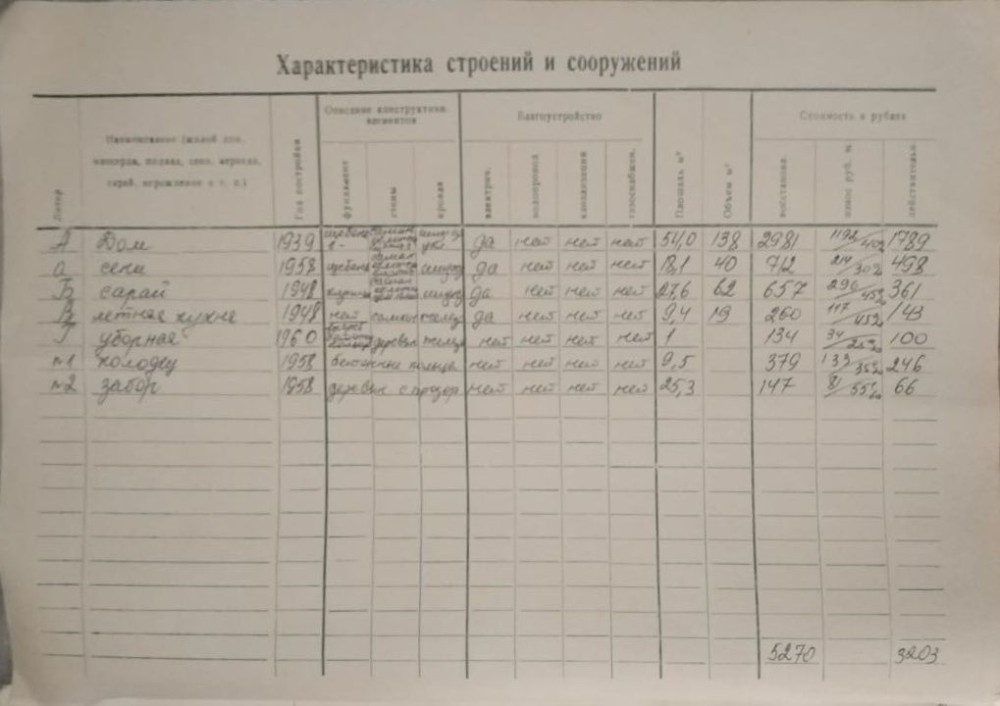 Характеристика строений и сооружений
Литер
Наименование (жилой дом,
сарай,
Год постройки
Описание конструктивн. элементов
фундамент
стены
кровля
Благоустройство
электрич.
водопровод
канализация
Площадь м²
Объем м³
Стоимость в рублях
восстановл.
износ руб. %
действительн.
А Дом 1939 да нет нет нет 51,0 138 2981 1192/40% 1789
а сени 1958 да нет нет нет 18,1 40 712 214/30% 498
Б сарай 1948 да нет нет нет 27,6 62 657 296/45% 361
В летняя кухня 1948 нет саман да нет нет нет 9,4 19 260 117/45% 143
Г уборная 1960 деревян нет нет нет нет 1 134 34/25% 100
m1 колодец 1958 бетонные кольца нет нет нет нет 9,5 379 133/35% 246
m2 забор 1958 деревян с прозор нет нет нет нет 25,3 147 81/55% 66
5270 3203